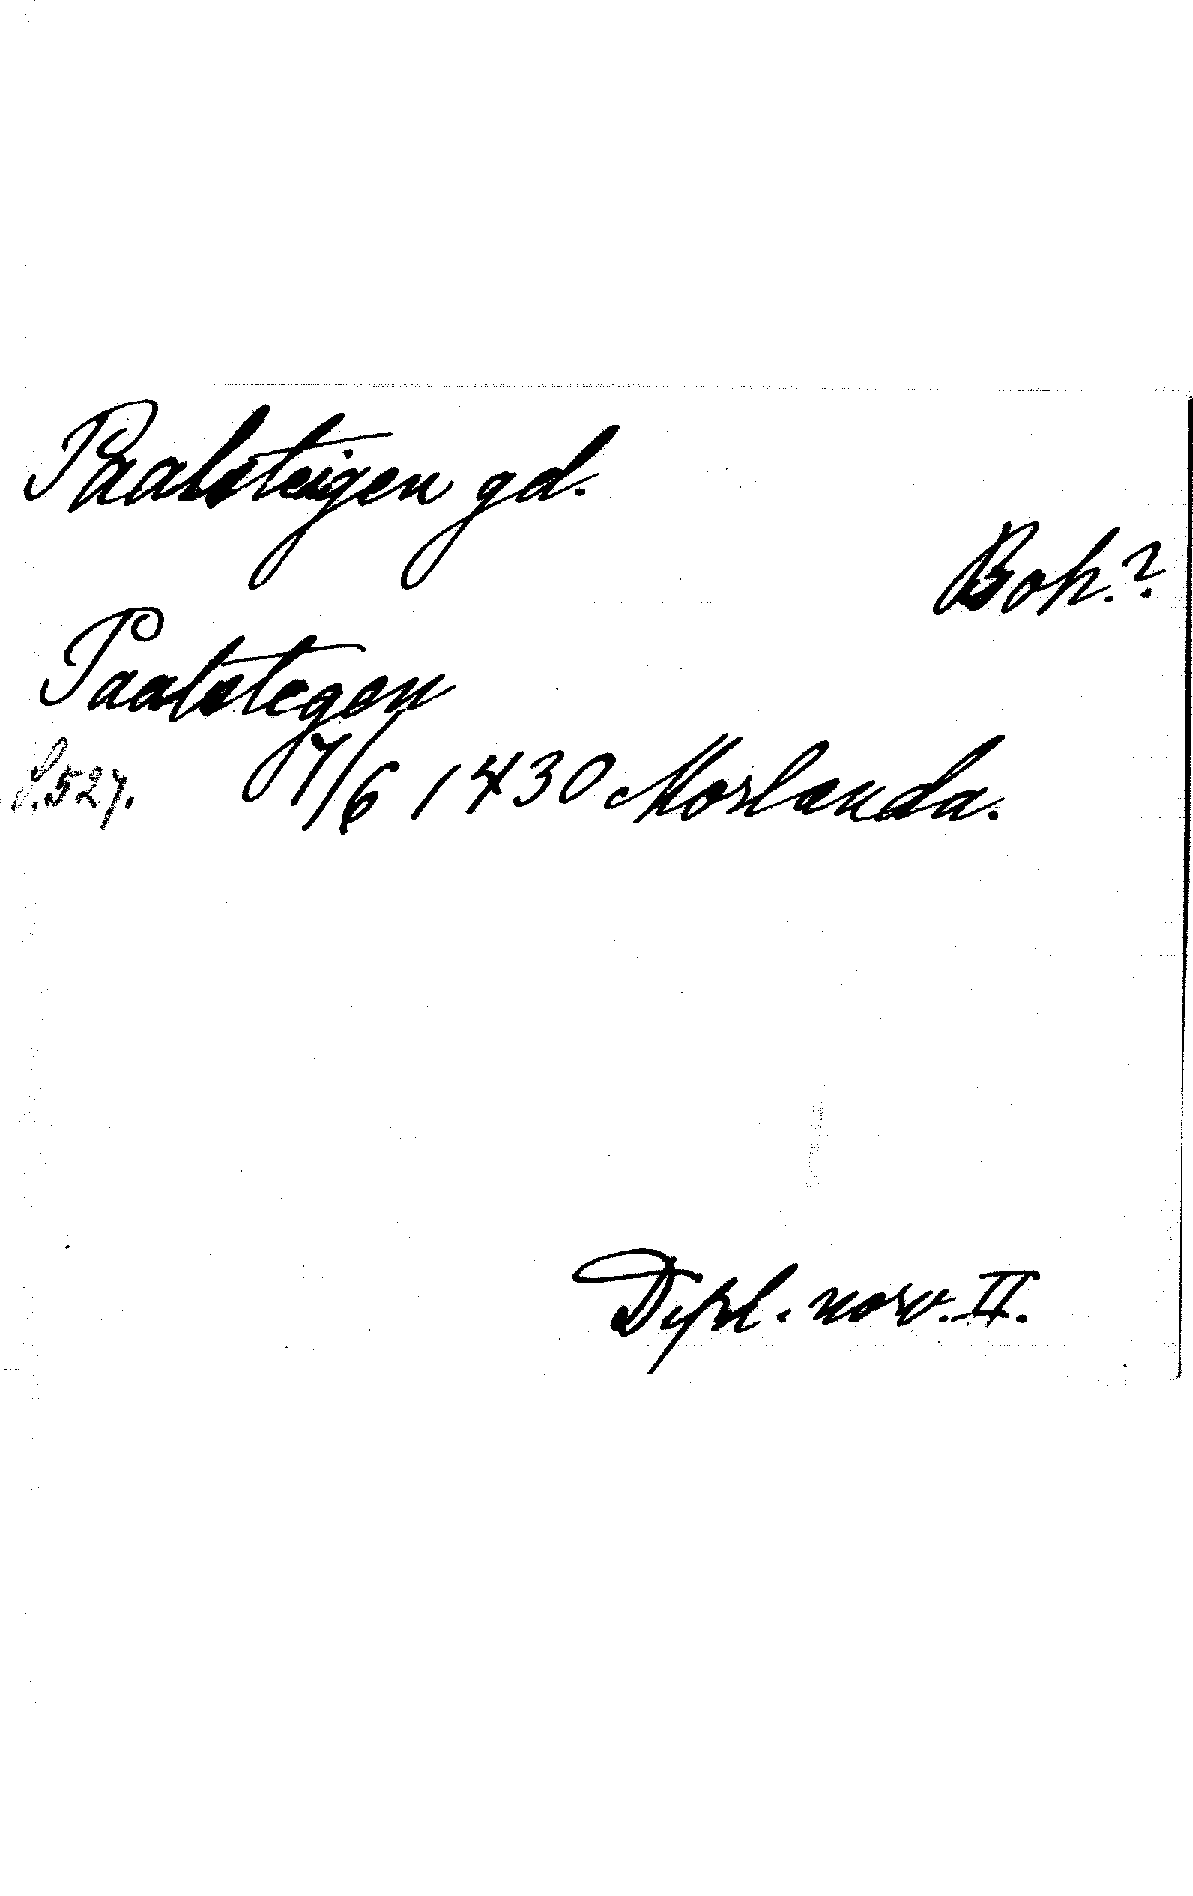 Paalsteigen gd.
Boh.?
Paalstegen
S. 527. 7/6 1430 Morlanda.
Dipl. norv. II.